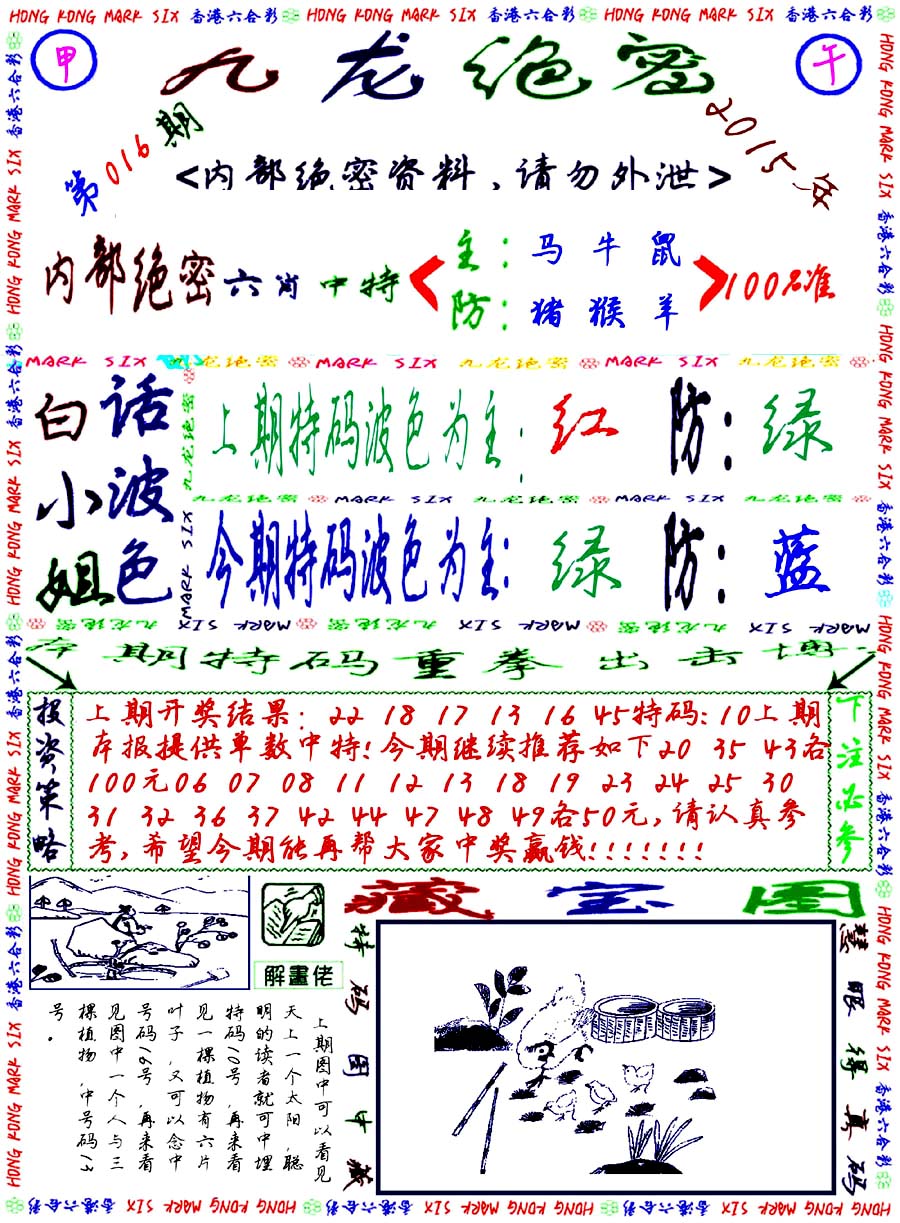 HONG KONG MARK SIX 香港六合彩 HONG KONG MARK SIX 香港六合彩 HONG KONG MARK SIX 香港六合彩
甲
九龙绝密
午
第016期
2015年
<内部绝密资料、请勿外泄>
内部绝密六肖中特
主：马牛鼠
防：猪猴羊
100%准
MARK SIX 九龙绝密 MARK SIX 九龙绝密 MARK SIX 九龙绝密
白话
小波
姐色
上期特码波色为主：红 防：绿
九龙绝密 MARK SIX 九龙绝密 MARK SIX 九龙绝密
今期特码波色为主：绿 防：蓝
九龙绝密 MARK SIX 九龙绝密 MARK SIX 九龙绝密 MARK SIX
本期特码重拳出击
投资策略
上期开奖结果：22 18 17 13 16 45特码：10上期
本报提供单数中特！今期继续推荐如下20 35 43各
100元06 07 08 11 12 13 18 19 23 24 25 30
31 32 36 37 42 44 47 48 49各50元，请认真参
考，希望今期能再帮大家中奖赢钱！！！！！！！
下注必参
藏宝图
解畫佬
上期图中可以看见
天上一个太阳，聪
明的读者就可中埋
特码10号，再来看
见一棵植物有六片
叶子，又可以念中
号码16号，再来看
见图中一个人与三
棵植物，中号码13
号。
特码图中藏
慧眼得真码
HONG KONG MARK SIX 香港六合彩 HONG KONG MARK SIX 香港六合彩 HONG KONG MARK SIX 香港六合彩